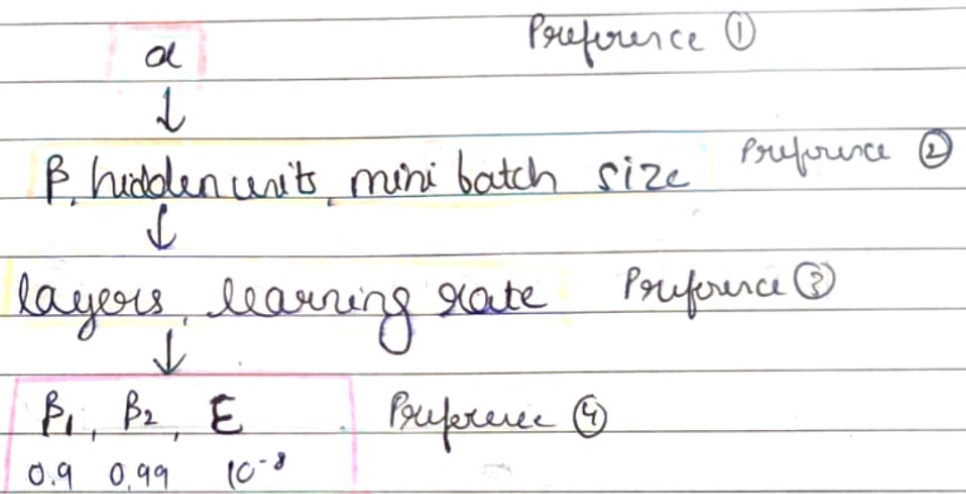 α Preference ①
↓
β, hidden units, mini batch size Preference ②
↓
layers, learning rate Preference ③
↓
β₁, β₂, E Preference ④
0.9 0.99 10⁻⁸